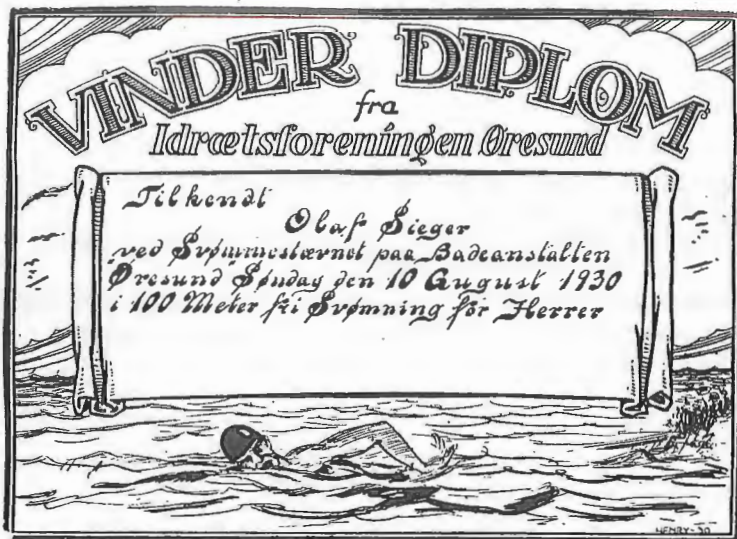 VINDER DIPLOM
fra
Idrætsforeningen Øresund
Tilkendt
Olaf Sieger
ved Svømmestævnet paa Badeanstalten
"Øresund" Søndag den 10 August 1930
i 100 Meter fri Svømning för Herrer
HENRY-30